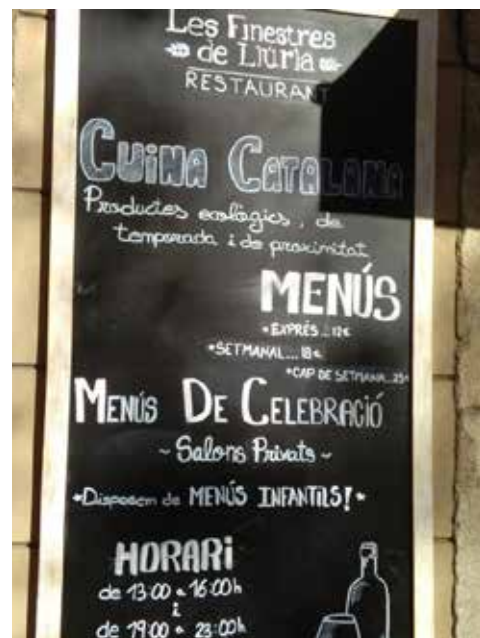 Les Finestres
de Llúria
RESTAURANT
CUINA CATALANA
Productes ecològics, de
temporada i de proximitat
MENÚS
*EXPRÉS...12€
*SETMANAL...18€
*CAP DE SETMANA...25€
MENÚS DE CELEBRACIÓ
~ Salons Privats ~
*Disposem de MENÚS INFANTILS!*
HORARI
de 13:00 a 16:00h
i
de 19:00 a 23:00h